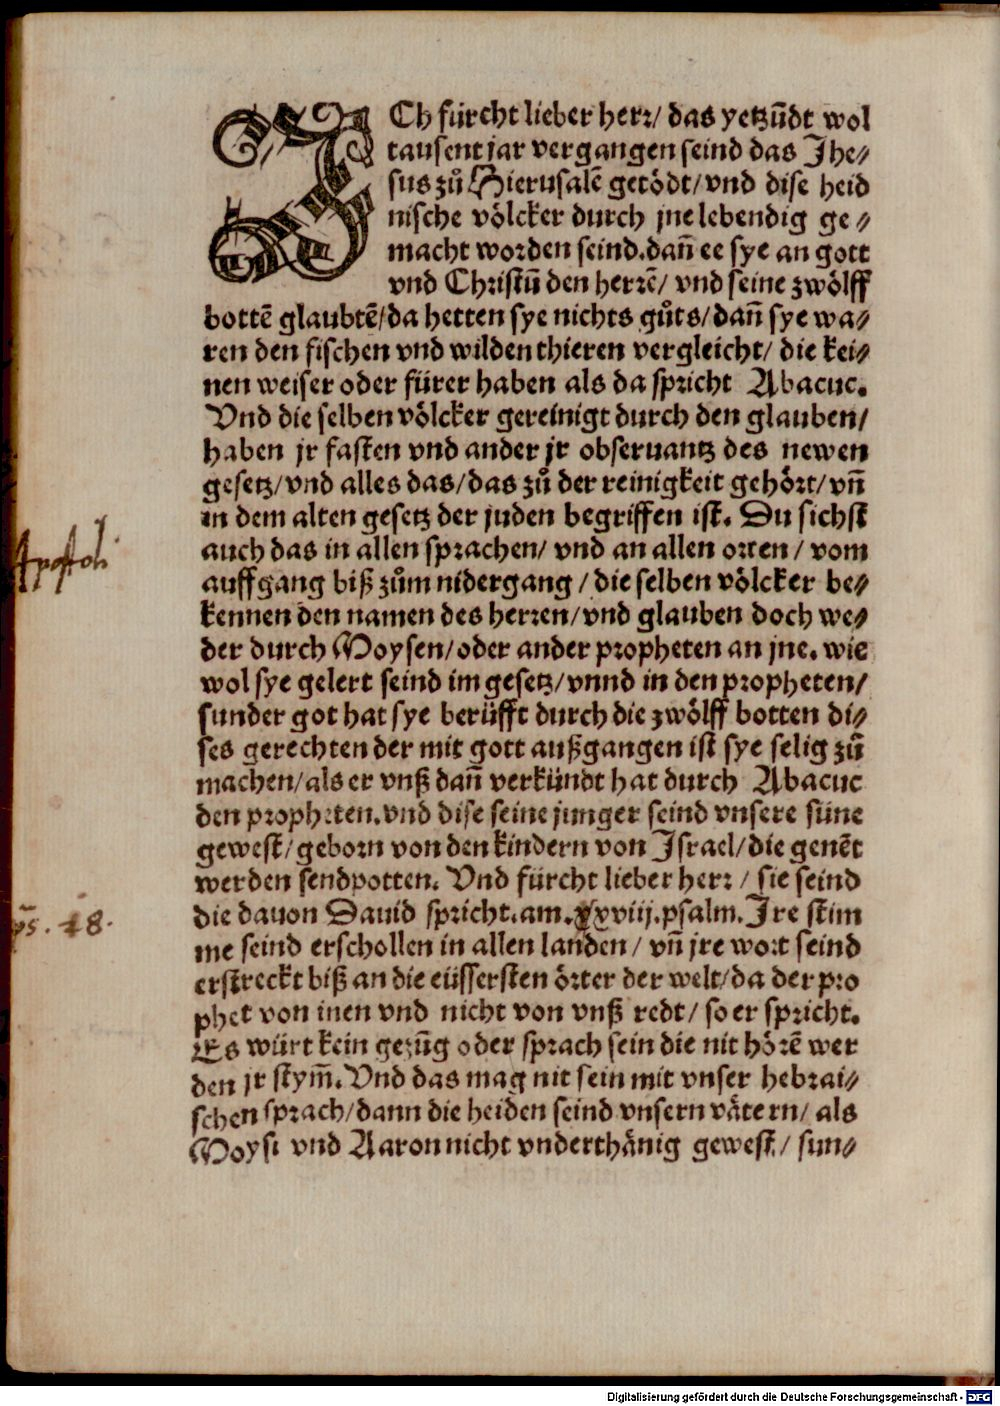 ICh fürcht lieber herr/ das yetzūdt wol
tausent jar vergangen seind das Jhe⸗
sus zů Hierusalē getödt/ vnd dise heid
nische völcker durch jne lebendig ge⸗
macht worden seind. dañ ee sye an gott
vnd Christū den herrē/ vnd seine zwölff
bottē glaubtē/ da hetten sye nichts gůts/ dañ sye wa⸗
ren den fischen vnd wilden thieren vergleicht/ die kei⸗
nen weiser oder fürer haben als da spricht Abacuc.
Vnd die selben völcker gereinigt durch den glauben/
haben jr fasten vnd ander jr obseruantz des newen
gesetz/ vnd alles das/ das zů der reinigkeit gehört/ vñ
in dem alten gesetz der juden begriffen ist. Du sichst
auch das in allen sprachen/ vnd an allen orten/ vom
Apostoli
auffgang biß zům nidergang/ die selben völcker be⸗
kennen den namen des herren/ vnd glauben doch we⸗
der durch Moysen/ oder ander propheten an jne. wie
wol sye gelert seind im gesetz/ vnnd in den propheten/
sunder got hat sye berüfft durch die zwölff botten di⸗
ses gerechten der mit gott außgangen ist sye selig zů
machen/ als er vnß dañ verkündt hat durch Abacuc
den propheten. vnd dise seine junger seind vnsere süne
gewest/ geborn von den kindern von Israel/ die genēt
werden sendpotten. Vnd fürcht lieber herr/ sie seind
die dauon Dauid spricht. am. xxviij. psalm. Ire stim
ps. 18.
me seind erschollen in allen landen/ vñ jre wort seind
erstreckt biß an die eüssersten örter der welt/ da der pro
phet von inen vnd nicht von vnß redt/ so er spricht.
Es würt kein gezūg oder sprach sein die nit hörē wer
den jr stym̄. Vnd das mag nit sein mit vnser hebrai⸗
schen sprach/ dann die heiden seind vnsern vätern/ als
Moysi vnd Aaron nicht vnderthänig gewest/ sun⸗
Digitalisierung gefördert durch die Deutsche Forschungsgemeinschaft - DFG